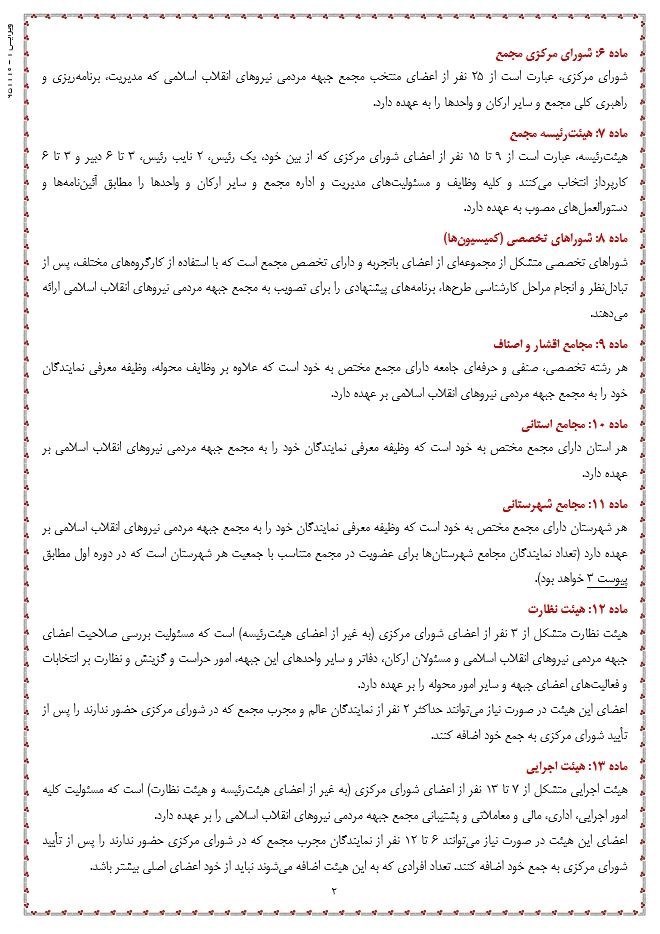 ماده ۶: شورای مرکزی مجمع
شورای مرکزی، عبارت است از ۲۵ نفر از اعضای منتخب مجمع جبهه مردمی نیروهای انقلاب اسلامی که مدیریت، برنامه‌ریزی و
راهبری کلی مجمع و سایر ارکان و واحدها را به عهده دارد.
ماده ۷: هیئت‌رئیسه مجمع
هیئت‌رئیسه، عبارت است از ۹ تا ۱۵ نفر از اعضای شورای مرکزی که از بین خود، یک رئیس، ۲ نایب رئیس، ۳ تا ۶ دبیر و ۳ تا ۶
کارپرداز انتخاب می‌کنند و کلیه وظایف و مسئولیت‌های مدیریت و اداره مجمع و سایر ارکان و واحدها را مطابق آئین‌نامه‌ها و
دستورالعمل‌های مصوب به عهده دارد.
ماده ۸: شوراهای تخصصی (کمیسیون‌ها)
شوراهای تخصصی متشکل از مجموعه‌ای از اعضای باتجربه و دارای تخصص مجمع است که با استفاده از کارگروه‌های مختلف، پس از
تبادل‌نظر و انجام مراحل کارشناسی طرح‌ها، برنامه‌های پیشنهادی را برای تصویب به مجمع جبهه مردمی نیروهای انقلاب اسلامی ارائه
می‌دهند.
ماده ۹: مجامع اقشار و اصناف
هر رشته تخصصی، صنفی و حرفه‌ای جامعه دارای مجمع مختص به خود است که علاوه بر وظایف محوله، وظیفه معرفی نمایندگان
خود را به مجمع جبهه مردمی نیروهای انقلاب اسلامی بر عهده دارد.
ماده ۱۰: مجامع استانی
هر استان دارای مجمع مختص به خود است که وظیفه معرفی نمایندگان خود را به مجمع جبهه مردمی نیروهای انقلاب اسلامی بر
عهده دارد.
ماده ۱۱: مجامع شهرستانی
هر شهرستان دارای مجمع مختص به خود است که وظیفه معرفی نمایندگان خود را به مجمع جبهه مردمی نیروهای انقلاب اسلامی بر
عهده دارد (تعداد نمایندگان مجامع شهرستان‌ها برای عضویت در مجمع متناسب با جمعیت هر شهرستان است که در دوره اول مطابق
پیوست ۳ خواهد بود).
ماده ۱۲: هیئت نظارت
هیئت نظارت متشکل از ۳ نفر از اعضای شورای مرکزی (به غیر از اعضای هیئت‌رئیسه) است که مسئولیت بررسی صلاحیت اعضای
جبهه مردمی نیروهای انقلاب اسلامی و مسئولان ارکان، دفاتر و سایر واحدهای این جبهه، امور حراست و گزینش و نظارت بر انتخابات
و فعالیت‌های اعضای جبهه و سایر امور محوله را بر عهده دارد.
اعضای این هیئت در صورت نیاز می‌توانند حداکثر ۲ نفر از نمایندگان عالم و مجرب مجمع که در شورای مرکزی حضور ندارند را پس از
تأیید شورای مرکزی به جمع خود اضافه کنند.
ماده ۱۳: هیئت اجرایی
هیئت اجرایی متشکل از ۷ تا ۱۳ نفر از اعضای شورای مرکزی (به غیر از اعضای هیئت‌رئیسه و هیئت نظارت) است که مسئولیت کلیه
امور اجرایی، اداری، مالی و معاملاتی و پشتیبانی مجمع جبهه مردمی نیروهای انقلاب اسلامی را بر عهده دارد.
اعضای این هیئت در صورت نیاز می‌توانند ۶ تا ۱۲ نفر از نمایندگان مجرب مجمع که در شورای مرکزی حضور ندارند را پس از تأیید
شورای مرکزی به جمع خود اضافه کنند. تعداد افرادی که به این هیئت اضافه می‌شوند نباید از خود اعضای اصلی بیشتر باشد.
۲